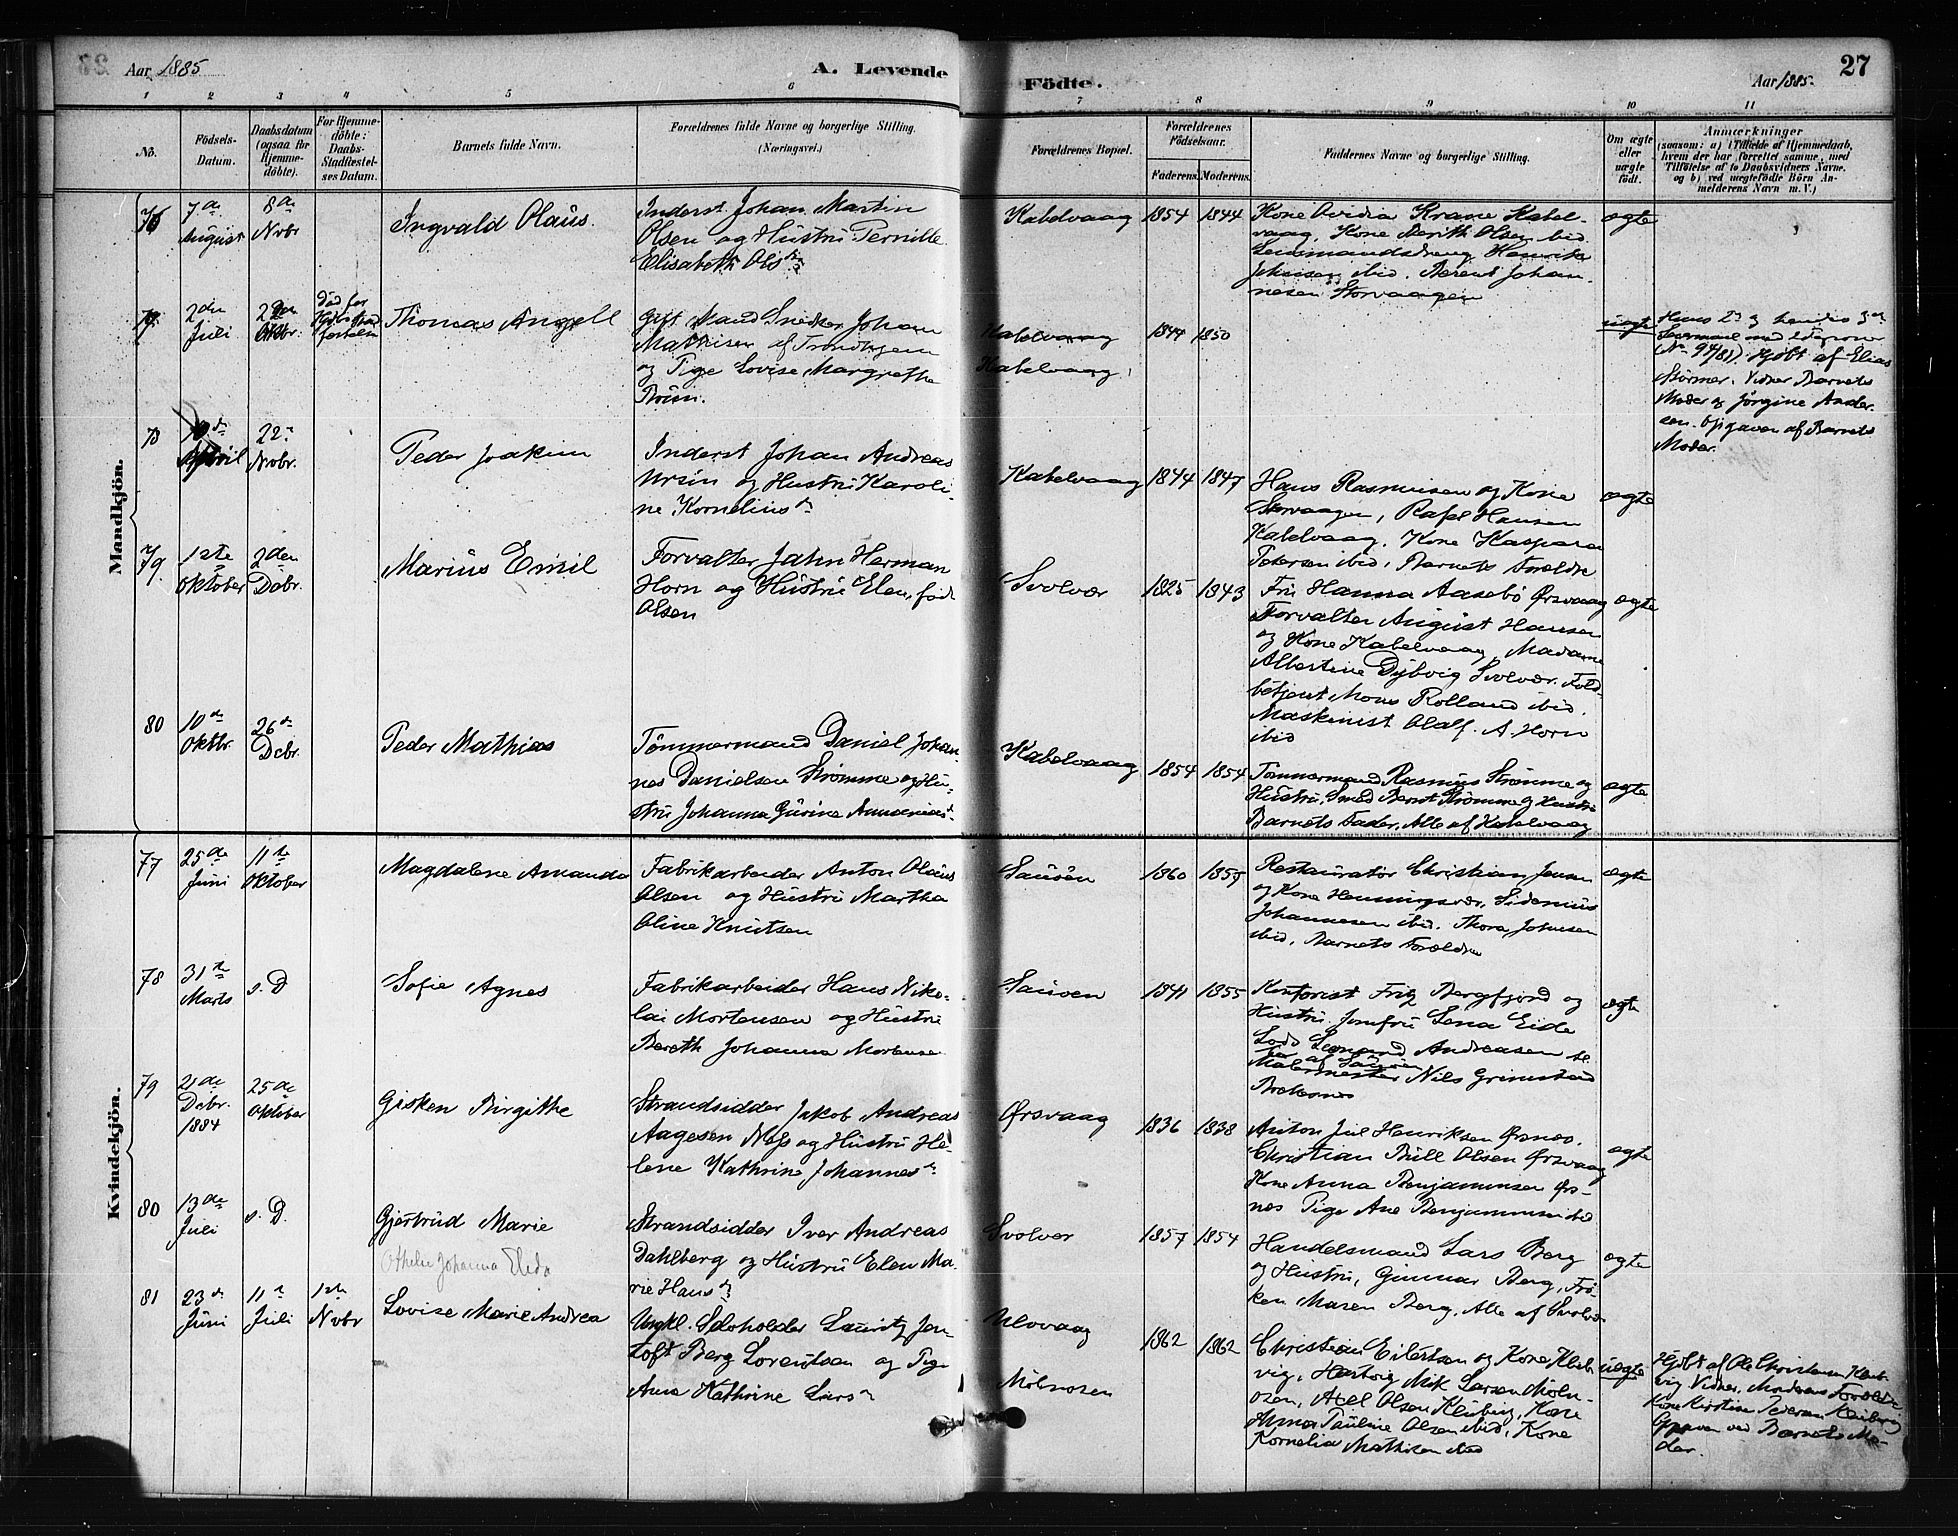 Aar 1885
A. Levende
Födte.
Aar 1885.
27
1 2 3 4 5 6 7 8 9 10 11
No.
Födsels-
Datum.
Daabsdatum
(ogsaa for
Hjemme-
döbte).
For Hjemme-
döbte:
Daabs-
Stadfæstel-
ses Datum.
Barnets fulde Navn.
Forældrenes fulde Navne og borgerlige Stilling.
(Næringsvei.)
Forældrenes Bopæl.
Forældrenes
Födselsaar.
Faderens. Moderens.
Faddernes Navne og borgerlige Stilling.
Om ægte
eller
uægte
födt.
Anmærkninger
(saasom: a) i Tilfælde af Hjemmedaab,
hvem der har forrettet samme, med
Tilföielse af to Daabsvidners Navne.
og b) ved uægtefödte Börn An-
melderens Navn m. V.)
Mandkjön.
76
7de
August
8de
Novbr
Ingvald Olaus.
Inderst Johan Martin
Olsen og Hustru Pernille
Elisabeth Olsdr
Kabelvaag
1854
1844
Kone Ovidia Krane Kabel-
vaag, Kone Berith Olsen ibid.
Lensmandsdreng Henrik
Johnsen ibid. Berent Johan-
nesen Storvaagen
ægte
2den
Juli
22den
Oktbr.
Død før
Thomas Angell
Gift Mand Snedker Johan
Mathisen af Trondhjem
og Pige Lovise Margrethe
Kabelvaag
Kabelvaag
1844
1850
uægte
Hans 2den og hendes 3die
Leiermaal
af Elias
Størmer. Vidner Barnets
Moder og Jørgine Ander-
sen. Opgaven af Barnets
Moder.
April
22de
Novbr.
Peder Joakim
Inderst Johan Andreas
Ursin og Hustru Karoli-
ne Korneliusdr
Kabelvaag
1844
1847
Hans Rasmusen og Kone
Storvaagen, Rafel Hansen
Kabelvaag, Kone Kaspara
Petersen ibid, Barnets Forældre
ægte
79
1ste
Oktober
2den
Debr.
Marius Emil
Forvalter Jahn Herman
Horn og Hustru Elen, født
Olsen
Svolvær
1825
1843
Fru Hanna Aasebø Ørsvaag
Forvalter August Hansen
og Kone Kabelvaag, Madame
Albertine Dybvig Svolvær. Told-
betjent Mons Rolland ibid.
Maskinist Olaf. A. Horn
ibid
ægte
80
10de
Oktbr.
26de
Debr.
Peder Mathias
Tømmermand Daniel Johan-
nes Danielsen Strømme og Hu-
stru Johanna Gurine
Kabelvaag
1854
1854
Tømmermand Rasmus Strømme og
Hustru, Smed Bernt Strømme og Hustru
Barnets Fader, Alle af Kabelvaag
ægte
Kvindekjön.
77
25de
Juni
11te
Oktober
Magdalene Amanda
Fabrikarbeider Anton Olaus
Olsen og Hustru Martha
Oline Knutsen
Sauøen
1860
1857
Restauratør Christian Jensen
og Kone Henningsvær, Sidenius
Johannesen ibid. Thora Johnsen
ibid, Barnets Forældre
ægte
78
31te
Marts
s. D
Sofie Agnes
Fabrikarbeider Hans Niko-
lai Mortensen og Hustru
Bereth Johanna Mortensen
Sauøen
1841
1855
Kontorist Fritz Bergfjord og
Hustru. Jomfru Lena Eide
Lods Leonard Andreasen
Malermester Nils Grimstad
ægte
79
21de
Debr.
1884
25de
Oktober
Gisken Birgithe
Strandsidder Jakob Andreas
Aagesen Næss og Hustru He-
lene Kathrine Johannesdr
Ørsvaag
1836
1838
Anton Juul Henriksen Ørsnes.
Christian Bull Olsen Ørsvaag
Kone Anna Benjaminsen Ørs-
nes Pige Ane Benjaminsen ibid
ægte
80
13de
Juli
s. D.
Gjertrud Marie
Othelie Johanna Elida
Strandsidder Iver Andreas
Dahlberg og Hustru Elen Ma-
rie Hansdr
Svolvær
1857
1854
Handelsmand Lars Berg
og Hustru, Gunnar Berg, Frø-
ken Maren Berg. Alle af Svolvær
ægte
81
23de
Juni
11te
Juli
1ste
Novbr
Lovise Marie Andrea
Ungkl. Sløholder Lauritz Jen-
toft Berg Lorentsen og Pige
Ana Kathrine Larsdr
Ulvvaag
Mølnosen
1862
1862
Christian Eilertsen og Kone Kleb-
vig, Hartvig Mik Larsen Møln-
osen, Axel Olsen Kluberg, Kone
Anna Pauline Olsen ibid, Kone
Kornelia Mathisen ibid
uægte
Hjdbt af Ole Christensen
Vidner, Moderens Forældre
Kone Kirstine Pedersen
Opgaven ved Barnets Mo-
der.